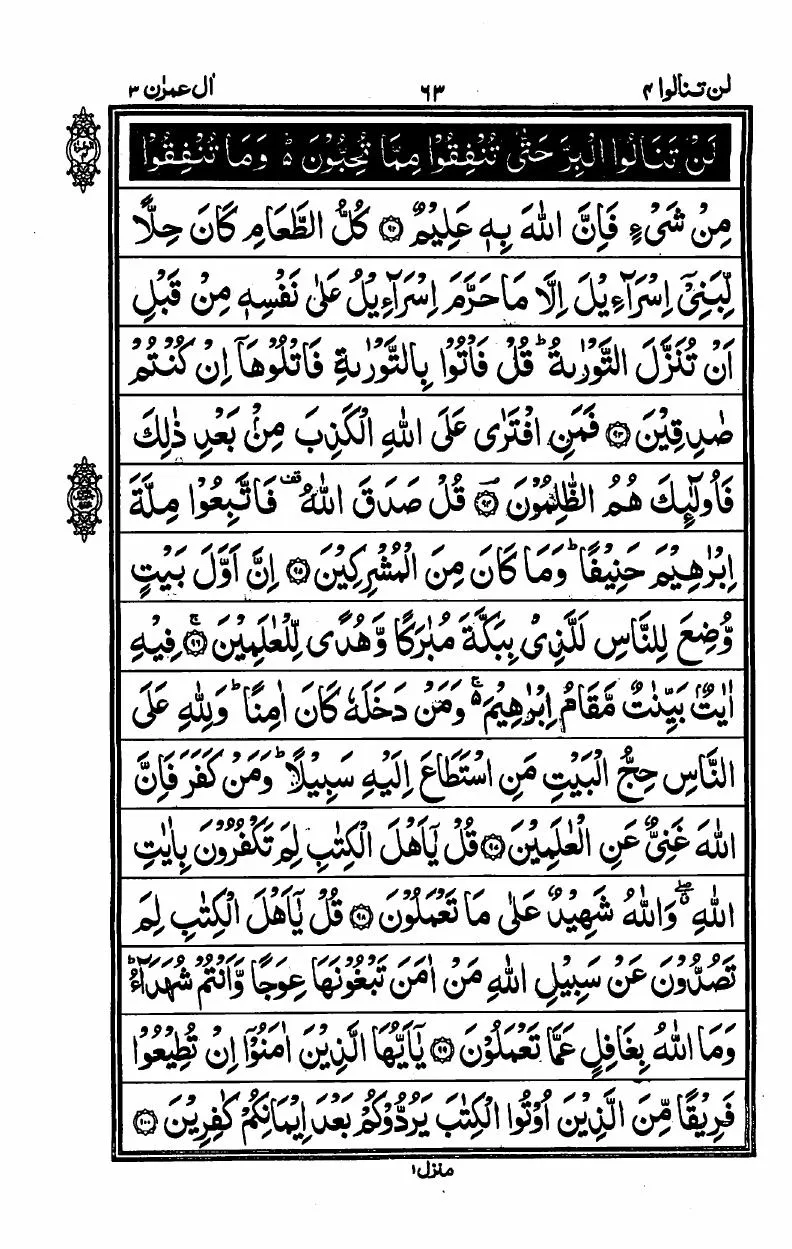 لن تنالوا ۴
۶۳
اٰل عمرٰن ۳
لَنْ تَنَالُوا الْبِرَّ حَتّٰى تُنْفِقُوْا مِمَّا تُحِبُّوْنَ ؕ وَمَا تُنْفِقُوْا
مِنْ شَیْءٍ فَاِنَّ اللّٰهَ بِهٖ عَلِيْمٌ ﴿۹۲﴾ كُلُّ الطَّعَامِ كَانَ حِلًّا
لِّبَنِیْۤ اِسْرَآءِيْلَ اِلَّا مَا حَرَّمَ اِسْرَآءِيْلُ عَلٰى نَفْسِهٖ مِنْ قَبْلِ
اَنْ تُنَزَّلَ التَّوْرٰىةُ ؕ قُلْ فَاْتُوْا بِالتَّوْرٰىةِ فَاتْلُوْهَاۤ اِنْ كُنْتُمْ
صٰدِقِيْنَ ﴿۹۳﴾ فَمَنِ افْتَرٰى عَلَى اللّٰهِ الْكَذِبَ مِنْۢ بَعْدِ ذٰلِكَ
فَاُولٰٓئِكَ هُمُ الظّٰلِمُوْنَ ﴿۹۴﴾ قُلْ صَدَقَ اللّٰهُ ۟ فَاتَّبِعُوْا مِلَّةَ
اِبْرٰهِيْمَ حَنِيْفًا ؕ وَمَا كَانَ مِنَ الْمُشْرِكِيْنَ ﴿۹۵﴾ اِنَّ اَوَّلَ بَيْتٍ
وُّضِعَ لِلنَّاسِ لَلَّذِیْ بِبَكَّةَ مُبٰرَكًا وَّهُدًى لِّلْعٰلَمِيْنَ ﴿۹۶﴾ۚ فِيْهِ
اٰيٰتٌۢ بَيِّنٰتٌ مَّقَامُ اِبْرٰهِيْمَ ۚ۬ وَمَنْ دَخَلَهٗ كَانَ اٰمِنًا ؕ وَلِلّٰهِ عَلَى
النَّاسِ حِجُّ الْبَيْتِ مَنِ اسْتَطَاعَ اِلَيْهِ سَبِيْلًا ؕ وَمَنْ كَفَرَ فَاِنَّ
اللّٰهَ غَنِیٌّ عَنِ الْعٰلَمِيْنَ ﴿۹۷﴾ قُلْ يٰۤاَهْلَ الْكِتٰبِ لِمَ تَكْفُرُوْنَ بِاٰيٰتِ
اللّٰهِ ۖ۬ وَاللّٰهُ شَهِيْدٌ عَلٰى مَا تَعْمَلُوْنَ ﴿۹۸﴾ قُلْ يٰۤاَهْلَ الْكِتٰبِ لِمَ
تَصُدُّوْنَ عَنْ سَبِيْلِ اللّٰهِ مَنْ اٰمَنَ تَبْغُوْنَهَا عِوَجًا وَّاَنْتُمْ شُهَدَآءُ ؕ
وَمَا اللّٰهُ بِغَافِلٍ عَمَّا تَعْمَلُوْنَ ﴿۹۹﴾ يٰۤاَيُّهَا الَّذِيْنَ اٰمَنُوْۤا اِنْ تُطِيْعُوْا
فَرِيْقًا مِّنَ الَّذِيْنَ اُوْتُوا الْكِتٰبَ يَرُدُّوْكُمْ بَعْدَ اِيْمَانِكُمْ كٰفِرِيْنَ ﴿۱۰۰﴾
منزل ۱